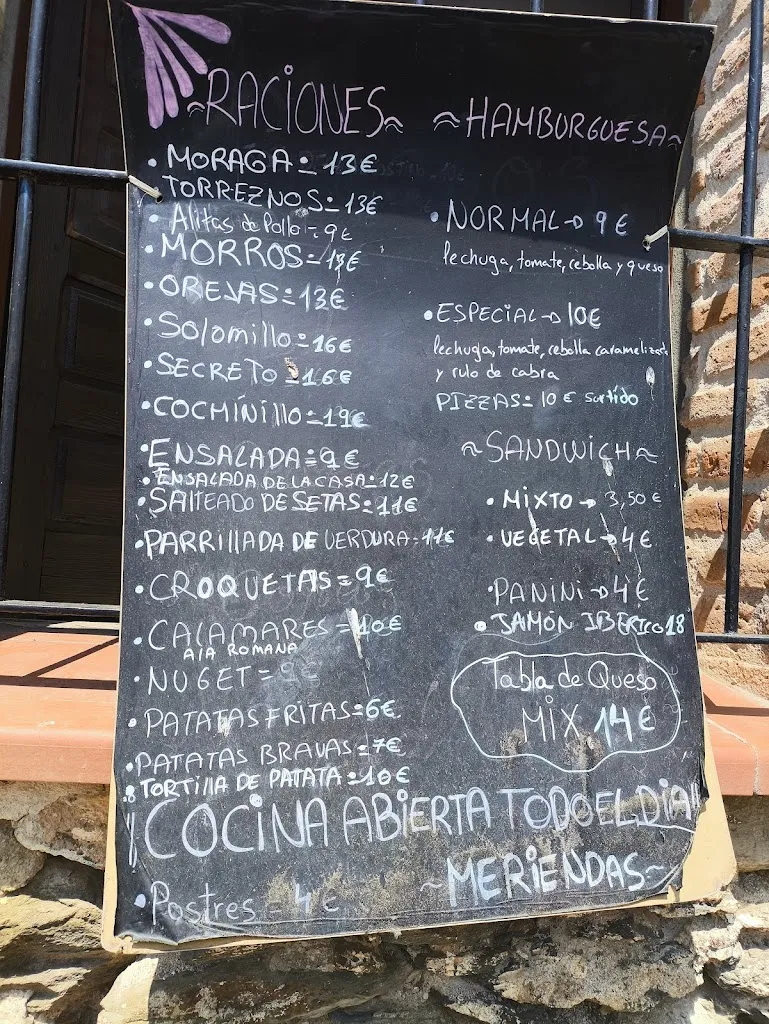 ~RACIONES~
• MORAGA = 13€
• TORREZNOS = 13€
• Alitas de Pollo = 9€
• MORROS = 13€
• OREJAS = 13€
• Solomillo = 16€
• SECRETO = 16€
• COCHINillo = 19€
• ENSALADA = 9€
• ENSALADA DE LA CASA = 12€
• SALTEADO DE SETAS = 11€
• PARRILLADA DE VERDURA = 11€
• CROQUETAS = 9€
• CALAMARES = 10€
A LA ROMANA
• NUGET = 9€
• PATATAS FRITAS = 6€
• PATATAS BRAVAS = 7€
• TORTILLA DE PATATA = 10€
≈HAMBURGUESA≈
• NORMAL → 9€
lechuga, tomate, cebolla y queso
• ESPECIAL → 10€
lechuga, tomate, cebolla
y rulo de cabra
PIZZAS = 10€ surtido
≈SANDWICH≈
• MIXTO → 3,50€
• VEGETAL → 4€
• PANINI → 4€
• JAMÓN IBERICO 18
Tabla de Queso
MIX 14€
¡COCINA ABIERTA TODO EL DIA!
~MERIENDAS~
• Postres = 4€